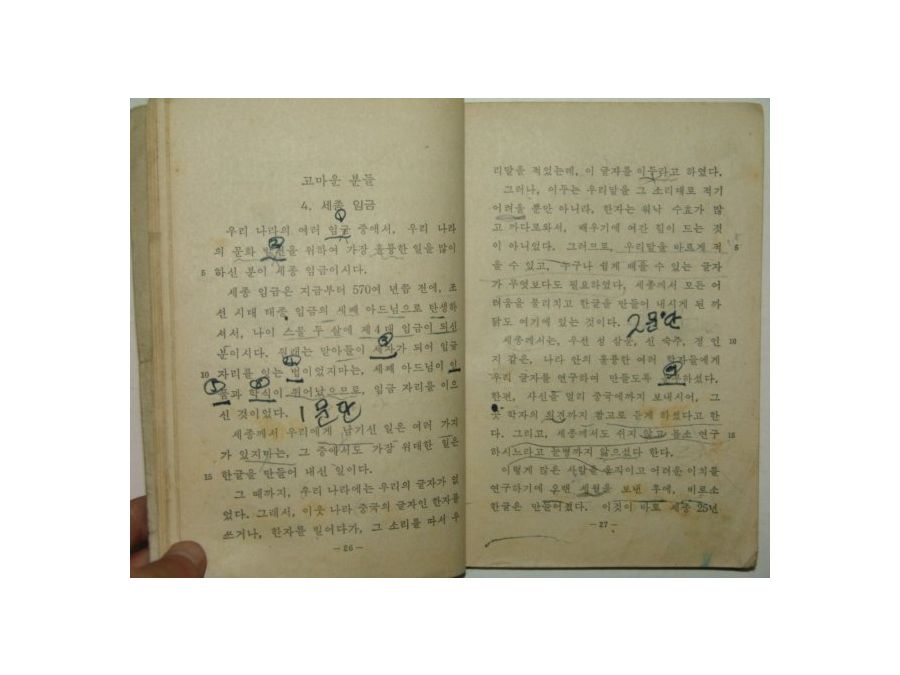 고마운 분들
4. 세종 임금
①
우리 나라의 여러 임금 중에서, 우리 나라
②
의 문화 발전을 위하여 가장 훌륭한 일을 많이
5 하신 분이 세종 임금이시다.
세종 임금은 지금부터 570여 년쯤 전에, 조
선 시대 태종 임금의 세째 아드님으로 탄생하
셔서, 나이 스물 두 살에 제4대 임금이 되신
분이시다. 원래는 맏아들이 세자가 되어 임금
10 자리를 잇는 법이었지마는, 세째 아드님이 인
품과 학식이 뛰어났으므로, 임금 자리를 이으
신 것이었다. 1문단
세종께서 우리에게 남기신 일은 여러 가지
가 있지마는, 그 중에서도 가장 위대한 일은
15 한글을 만들어 내신 일이다.
그 때까지, 우리 나라에는 우리의 글자가 없
었다. 그래서, 이웃 나라 중국의 글자인 한자를
쓰거나, 한자를 빌어다가, 그 소리를 따서 우
－26－
리말을 적었는데, 이 글자를 이두라고 하였다.
그러나, 이두는 우리말을 그 소리대로 적기
어려울 뿐만 아니라, 한자는 워낙 수효가 많
고 까다로와서, 배우기에 여간 힘이 드는 것
이 아니었다. 그러므로, 우리말을 바르게 적 5
을 수 있고, 누구나 쉽게 배울 수 있는 글자
가 무엇보다도 필요하였다. 세종께서 모든 어
려움을 물리치고 한글을 만들어 내시게 된 까
닭도 여기에 있는 것이다. 2문단
세종께서는, 우선 성 삼문, 신 숙주, 정 인 10
지 같은, 나라 안의 훌륭한 여러 학자들에게
우리 글자를 연구하여 만들도록 하셨다.
한편, 사신을 멀리 중국에까지 보내시어, 그
곳 학자의 의견까지 참고로 듣게 하셨다고 한
다. 그리고, 세종께서도 쉬지 않고 틈소 연구 15
하시느라고 눈병까지 앓으셨다 한다.
이렇게 많은 사람을 움직이고 어려운 이치를
연구하기에 오랜 세월을 보낸 후에, 비로소
한글은 만들어졌다. 이것이 바로 세종 25년
－27－